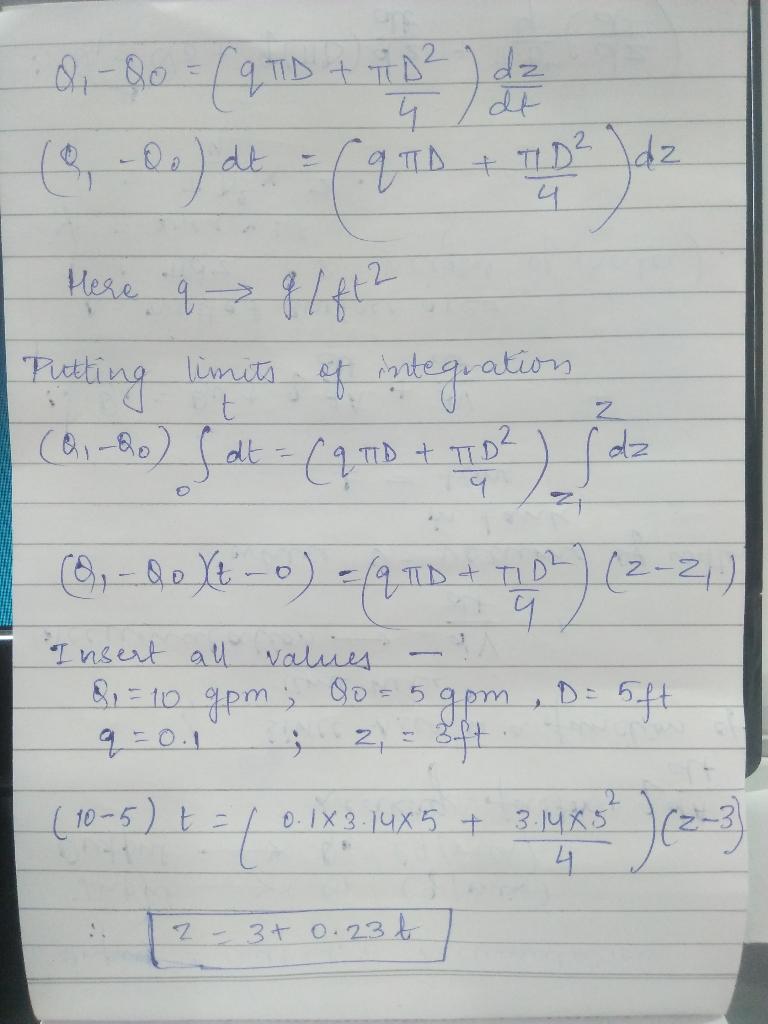 Q₁ - Q₀ = (qπD + πD²/4) dz/dt
(Q₁ - Q₀) dt = (qπD + πD²/4) dz
Here q → g/ft²
Putting limits of integration
(Q₁ - Q₀) ∫₀ᵗ dt = (qπD + πD²/4) ∫_{z₁}^{z} dz
(Q₁ - Q₀)(t - 0) = (qπD + πD²/4) (z - z₁)
Insert all values —
Q₁ = 10 gpm ; Q₀ = 5 gpm , D = 5ft
q = 0.1 ; z₁ = 3ft.
(10-5) t = (0.1×3.14×5 + 3.14×5²/4)(z-3)
∴ z = 3 + 0.23t